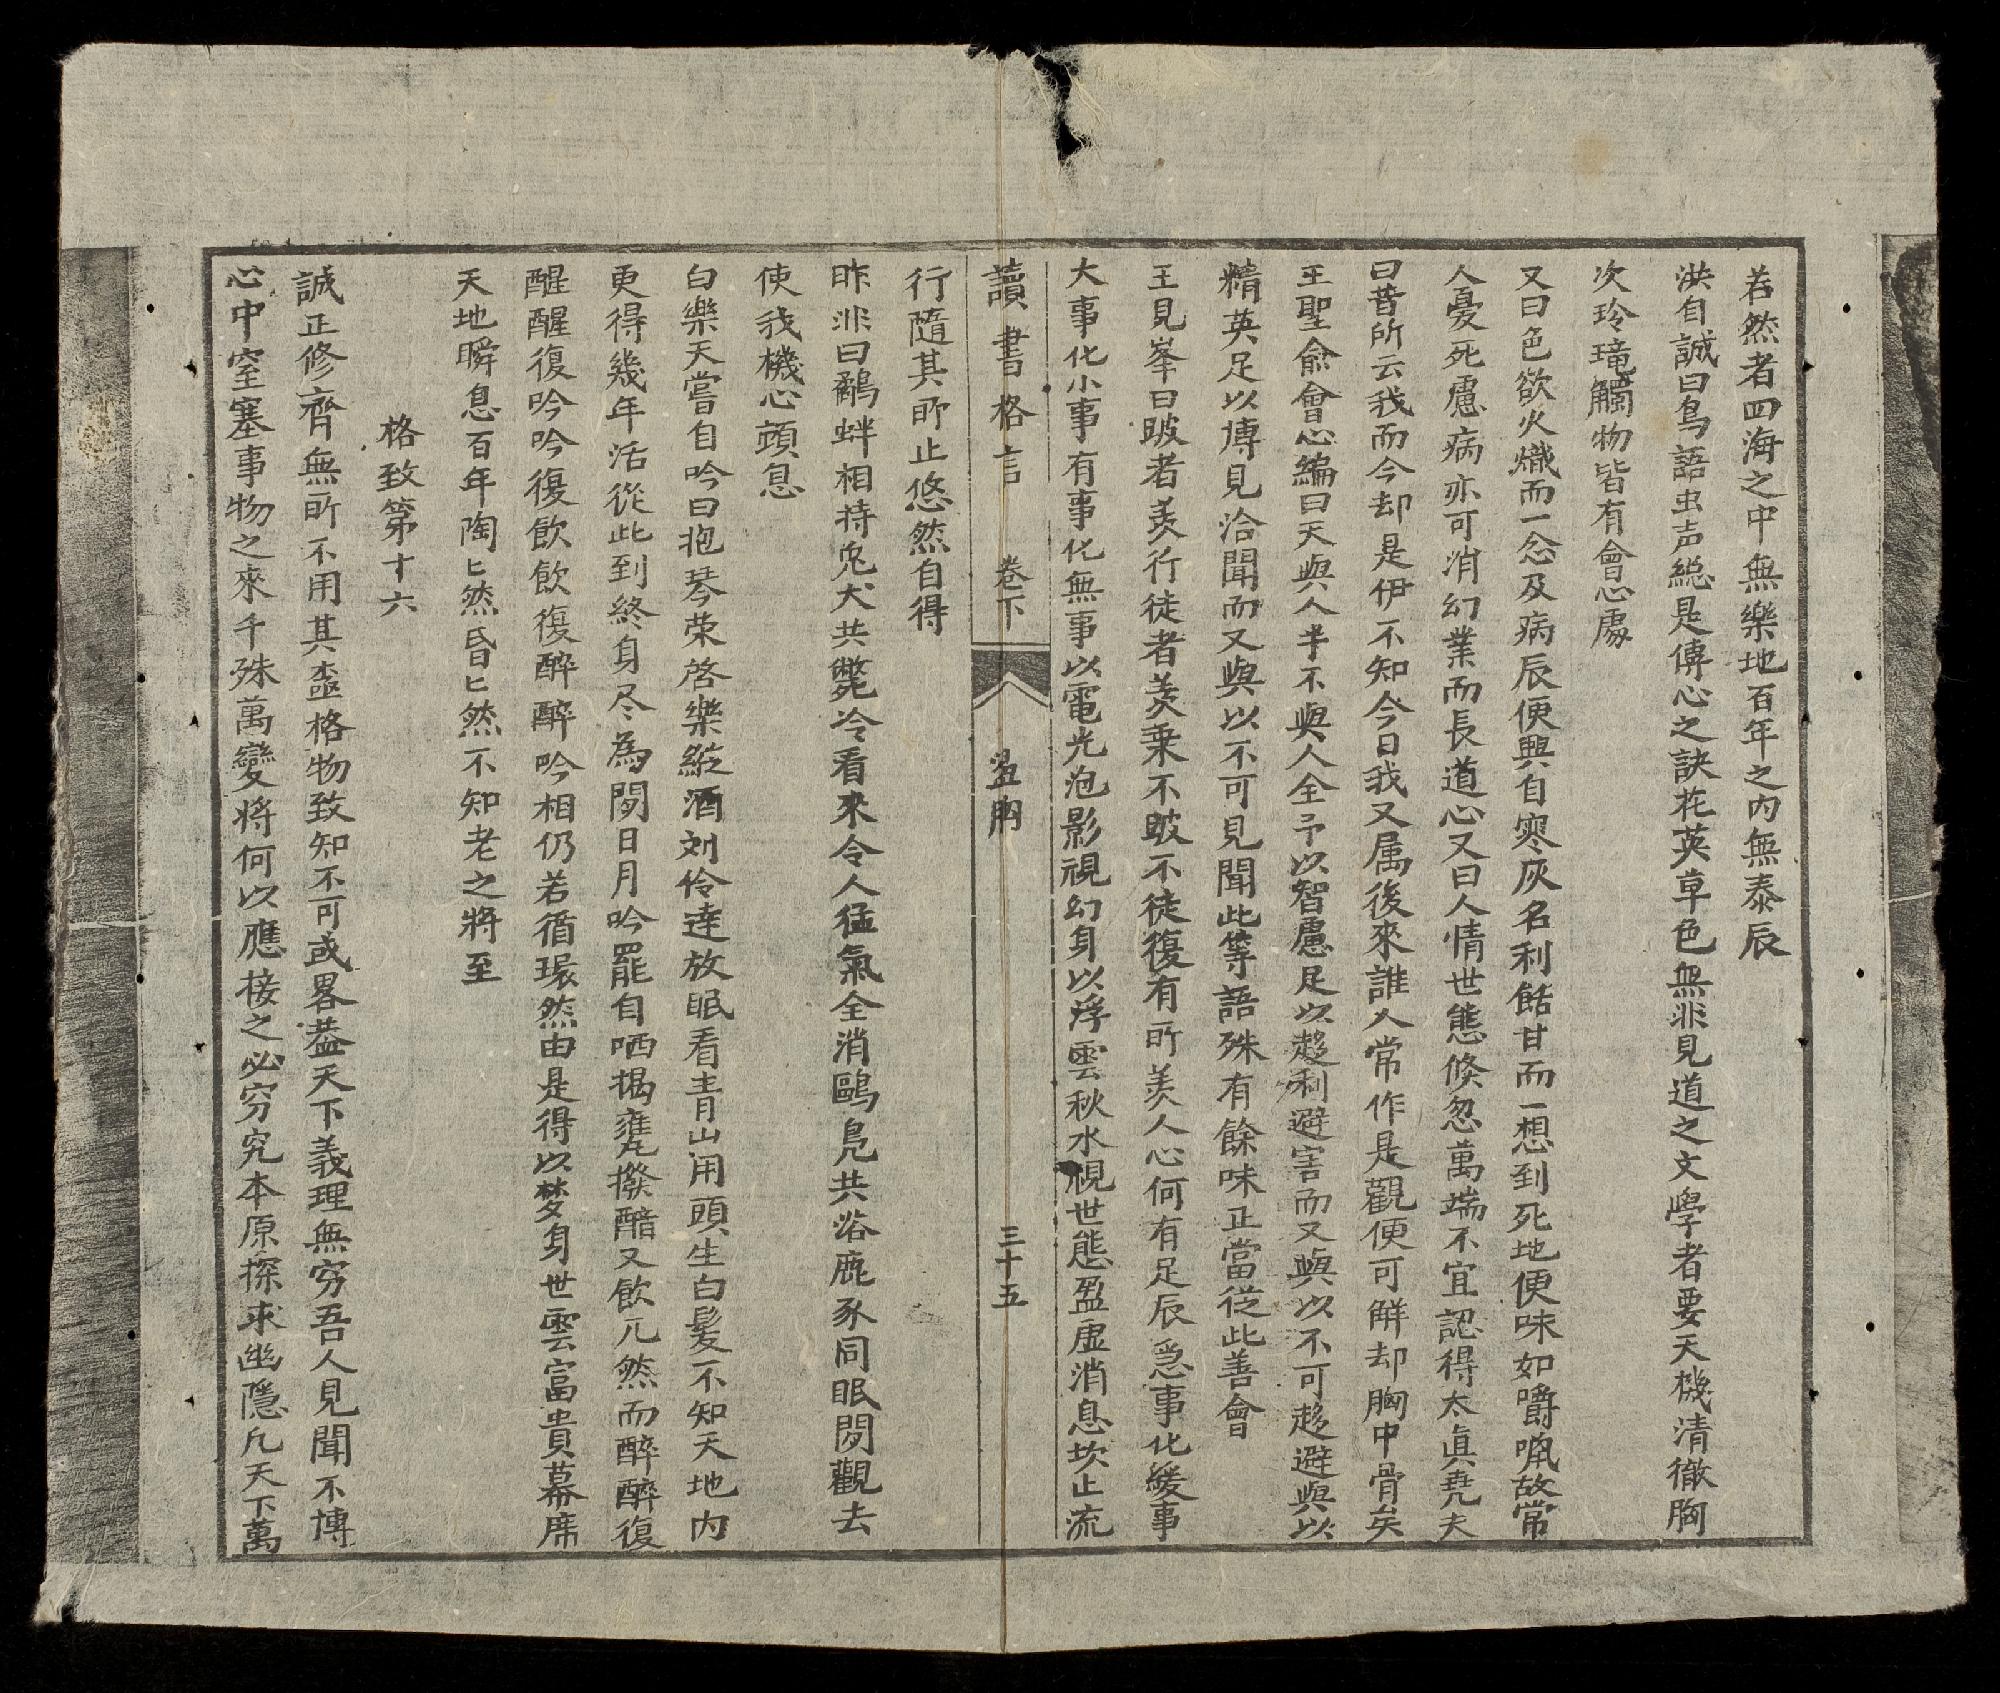 若然者四海之中無樂地百年之内無泰辰
洪自誠曰鳥語虫声総是傳心之訣花英草色無非見道之文學者要天機清徹胸
次玲瓏觸物皆有會心處
又曰色欲火熾而一念及病辰便興自寒灰名利餂甘而一想到死地便味如嚼㕵故常
人憂死慮病亦可消幻業而長道心又曰人情世態倐忽萬端不宜認得太真堯夫
曰昔所云我而今却是伊不知今日我又属後來誰人常作是觀便可解却胸中骨矣
王聖俞會心編曰天與人半不與人全予以智慮足以趍利避害而又與以不可趍避與以
精英足以博見洽聞而又與以不可見聞此等語殊有餘味正當從此善會
王見峯曰跛者羨行徒者羨乗不跛不徒復有所羨人心何有足辰急事化緩事
大事化小事有事化無事以電光泡影視幻身以浮雲秋水視世態盈虛消息坎止流
讀書格言 卷下 盐胸 三十五
行隨其所止悠然自得
昨非曰鷸蚌相持兔犬共斃冷看來令人猛氣全消鷗鳧共浴鹿豕同眠閒觀去
使我機心頓息
白樂天嘗自吟曰抱琴荣啓樂縱酒刘伶達放眠看青山用頭生白髮不知天地内
更得幾年活從此到終身尽為閒日月吟罷自哂揭甕撥醅又飲兀然而醉醉復
醒醒復吟吟復飲飲復醉醉吟相仍若循環然由是得以梦身世雲富貴幕席
天地瞬息百年陶匕然昏匕然不知老之將至
格致第十六
誠正修齊無所不用其盡格物致知不可或畧葢天下義理無穷吾人見聞不博
心中窒塞事物之來千殊萬變将何以應接之必穷究本原探求幽隱凡天下萬